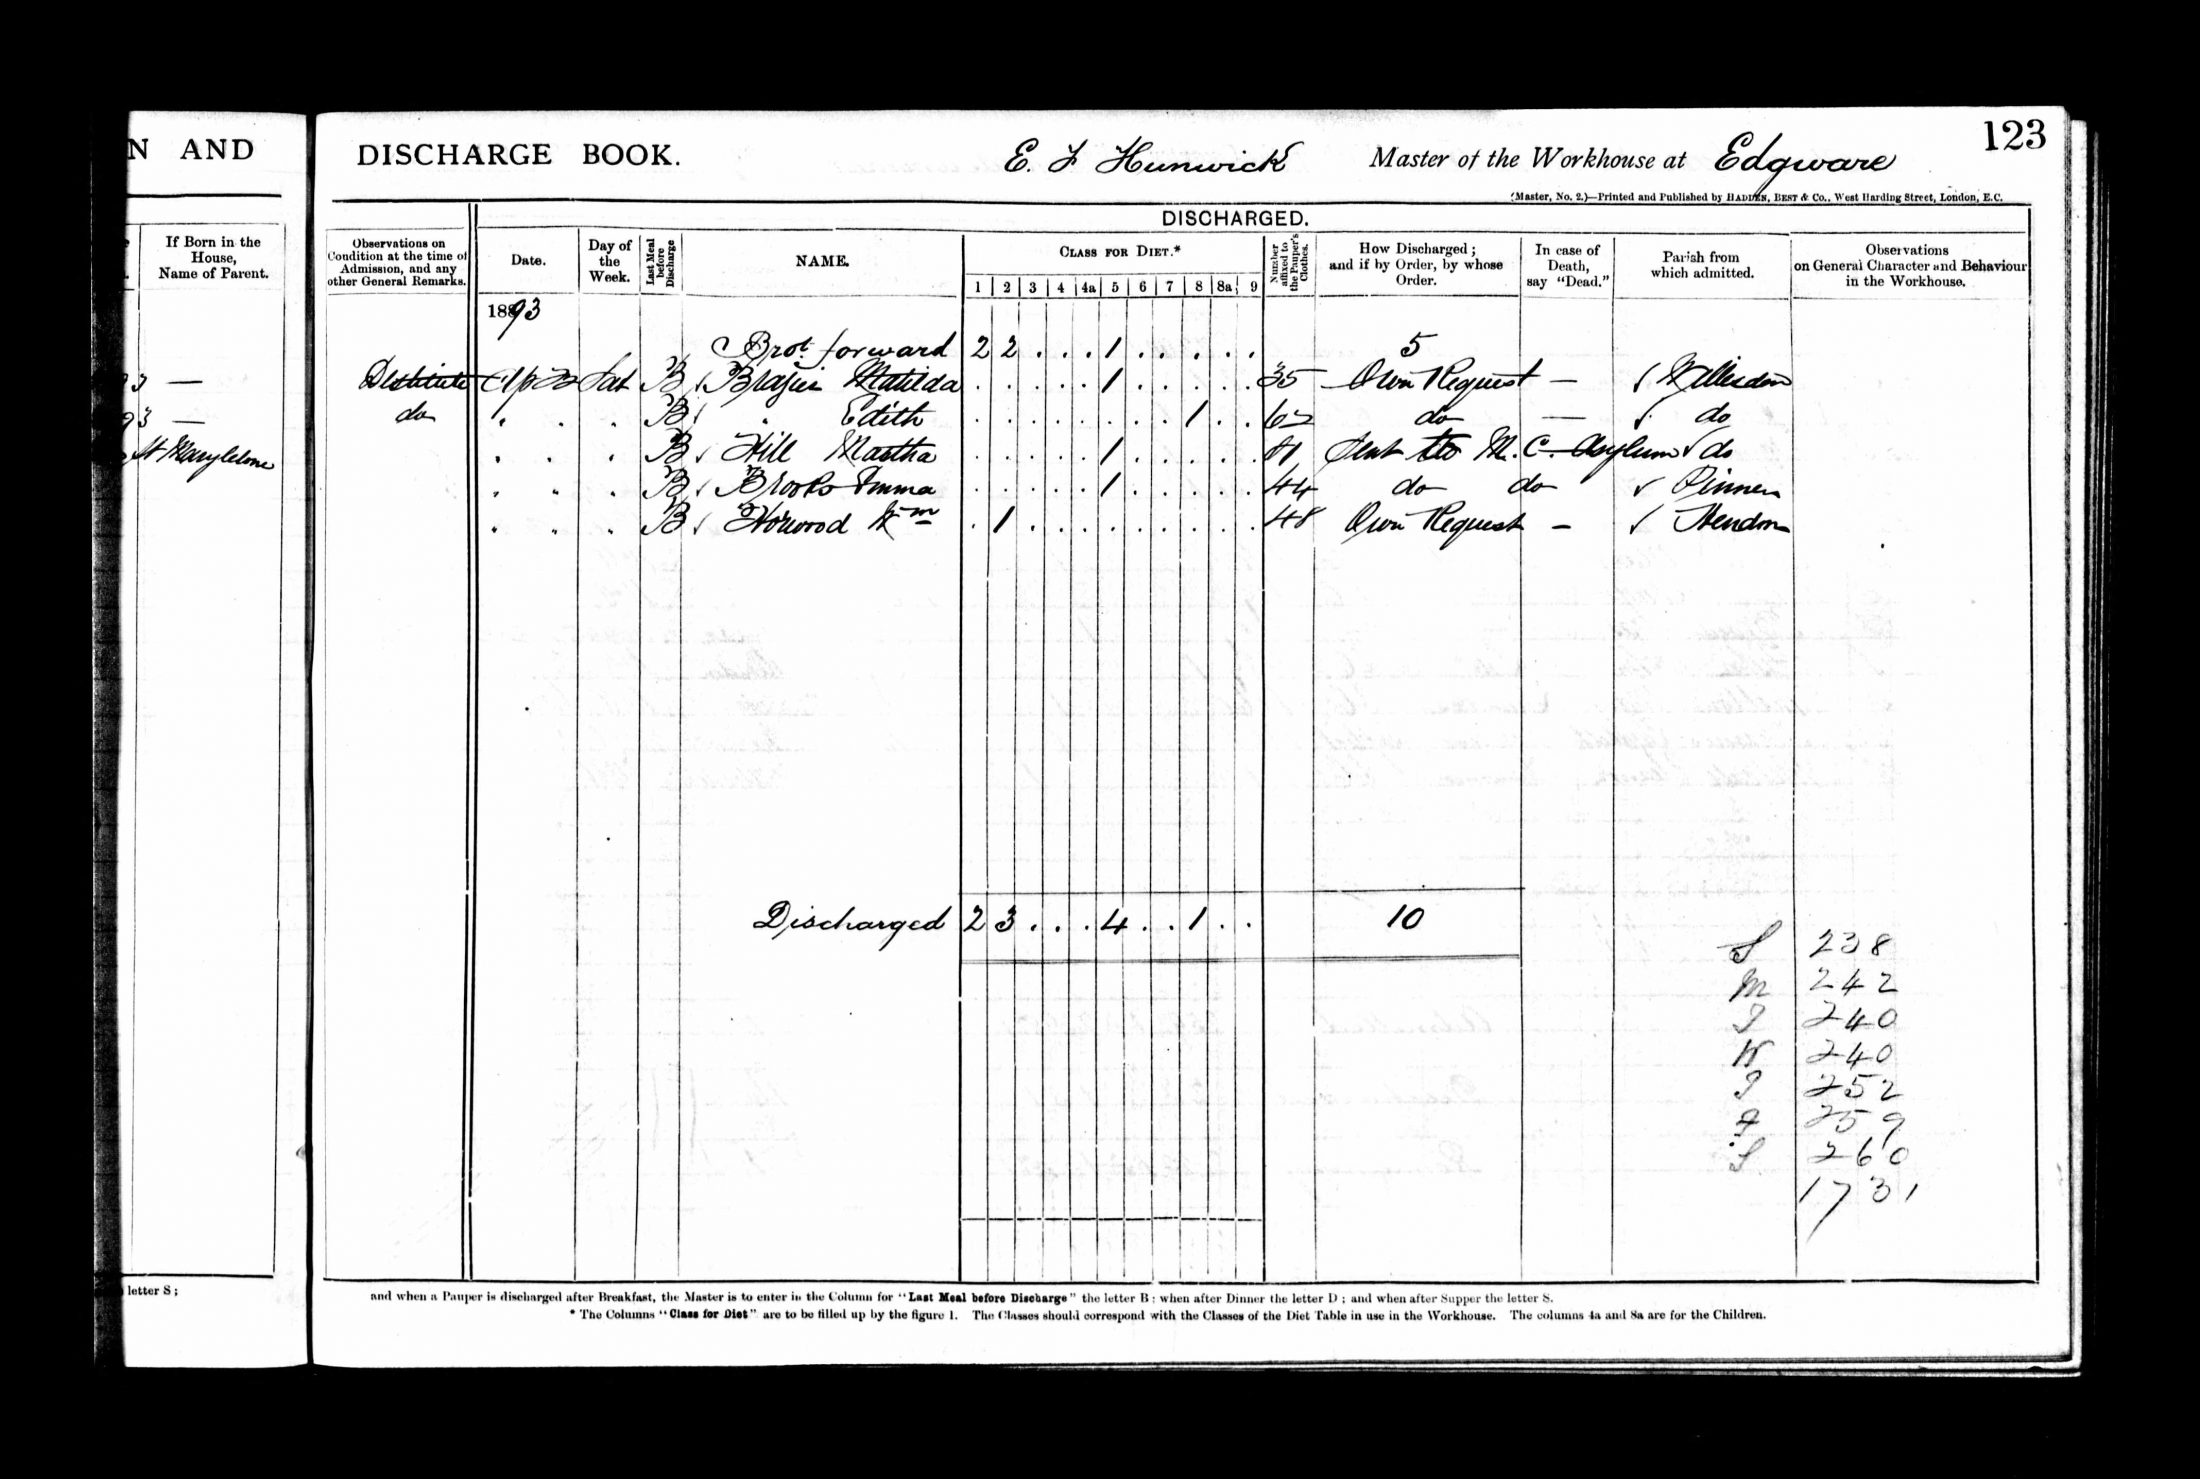 N AND
If Born in the
House,
Name of Parent.
93 —
93 —
St Marylebone
letter S ;
123
DISCHARGE BOOK.
E. J Hunwick Master of the Workhouse at Edgware
(Master, No. 2.)—Printed and Published by HADDEN, BEST & Co., West Harding Street, London, E.C.
DISCHARGED.
Observations on
Condition at the time of
Admission, and any
other General Remarks.
Date.
Day of
the
Week.
Last Meal
before
Discharge
NAME.
CLASS FOR DIET.*
1 2 3 4 4a 5 6 7 8 8a 9
Number
affixed to
the Pauper's
Clothes.
How Discharged ;
and if by Order, by whose
Order.
In case of
Death,
say "Dead."
Parish from
which admitted.
Observations
on General Character and Behaviour
in the Workhouse.
1893
Brot. forward 2 2 . . . 1 . . . . . 5
Destitute Ap 22 Sat B ✓ Brasier Matilda . . . . . 1 . . . . . 35 Own Request — ✓ Willesden
do " . . B ✓ " Edith . . . . . . . . 1 . . 62 do — ✓ do
" . . B ✓ Hill Martha . . . . . 1 . . . . . 81 Sent to M. C. Asylum ✓ do
" " . B ✓ Brooks Emma . . . . . 1 . . . . . 44 do do ✓ Pinner
" " . B ✓ Norwood Wm . 1 . . . . . . . . . 48 Own Request — ✓ Hendon
Discharged 2 3 . . . 4 . . 1 . . 10
S 238
M 242
T 240
W 240
T 252
F 259
S 260
1731
and when a Pauper is discharged after Breakfast, the Master is to enter in the Column for "Last Meal before Discharge" the letter B ; when after Dinner the letter D ; and when after Supper the letter S.
* The Columns "Class for Diet" are to be filled up by the figure 1. The Classes should correspond with the Classes of the Diet Table in use in the Workhouse. The columns 4a and 8a are for the Children.